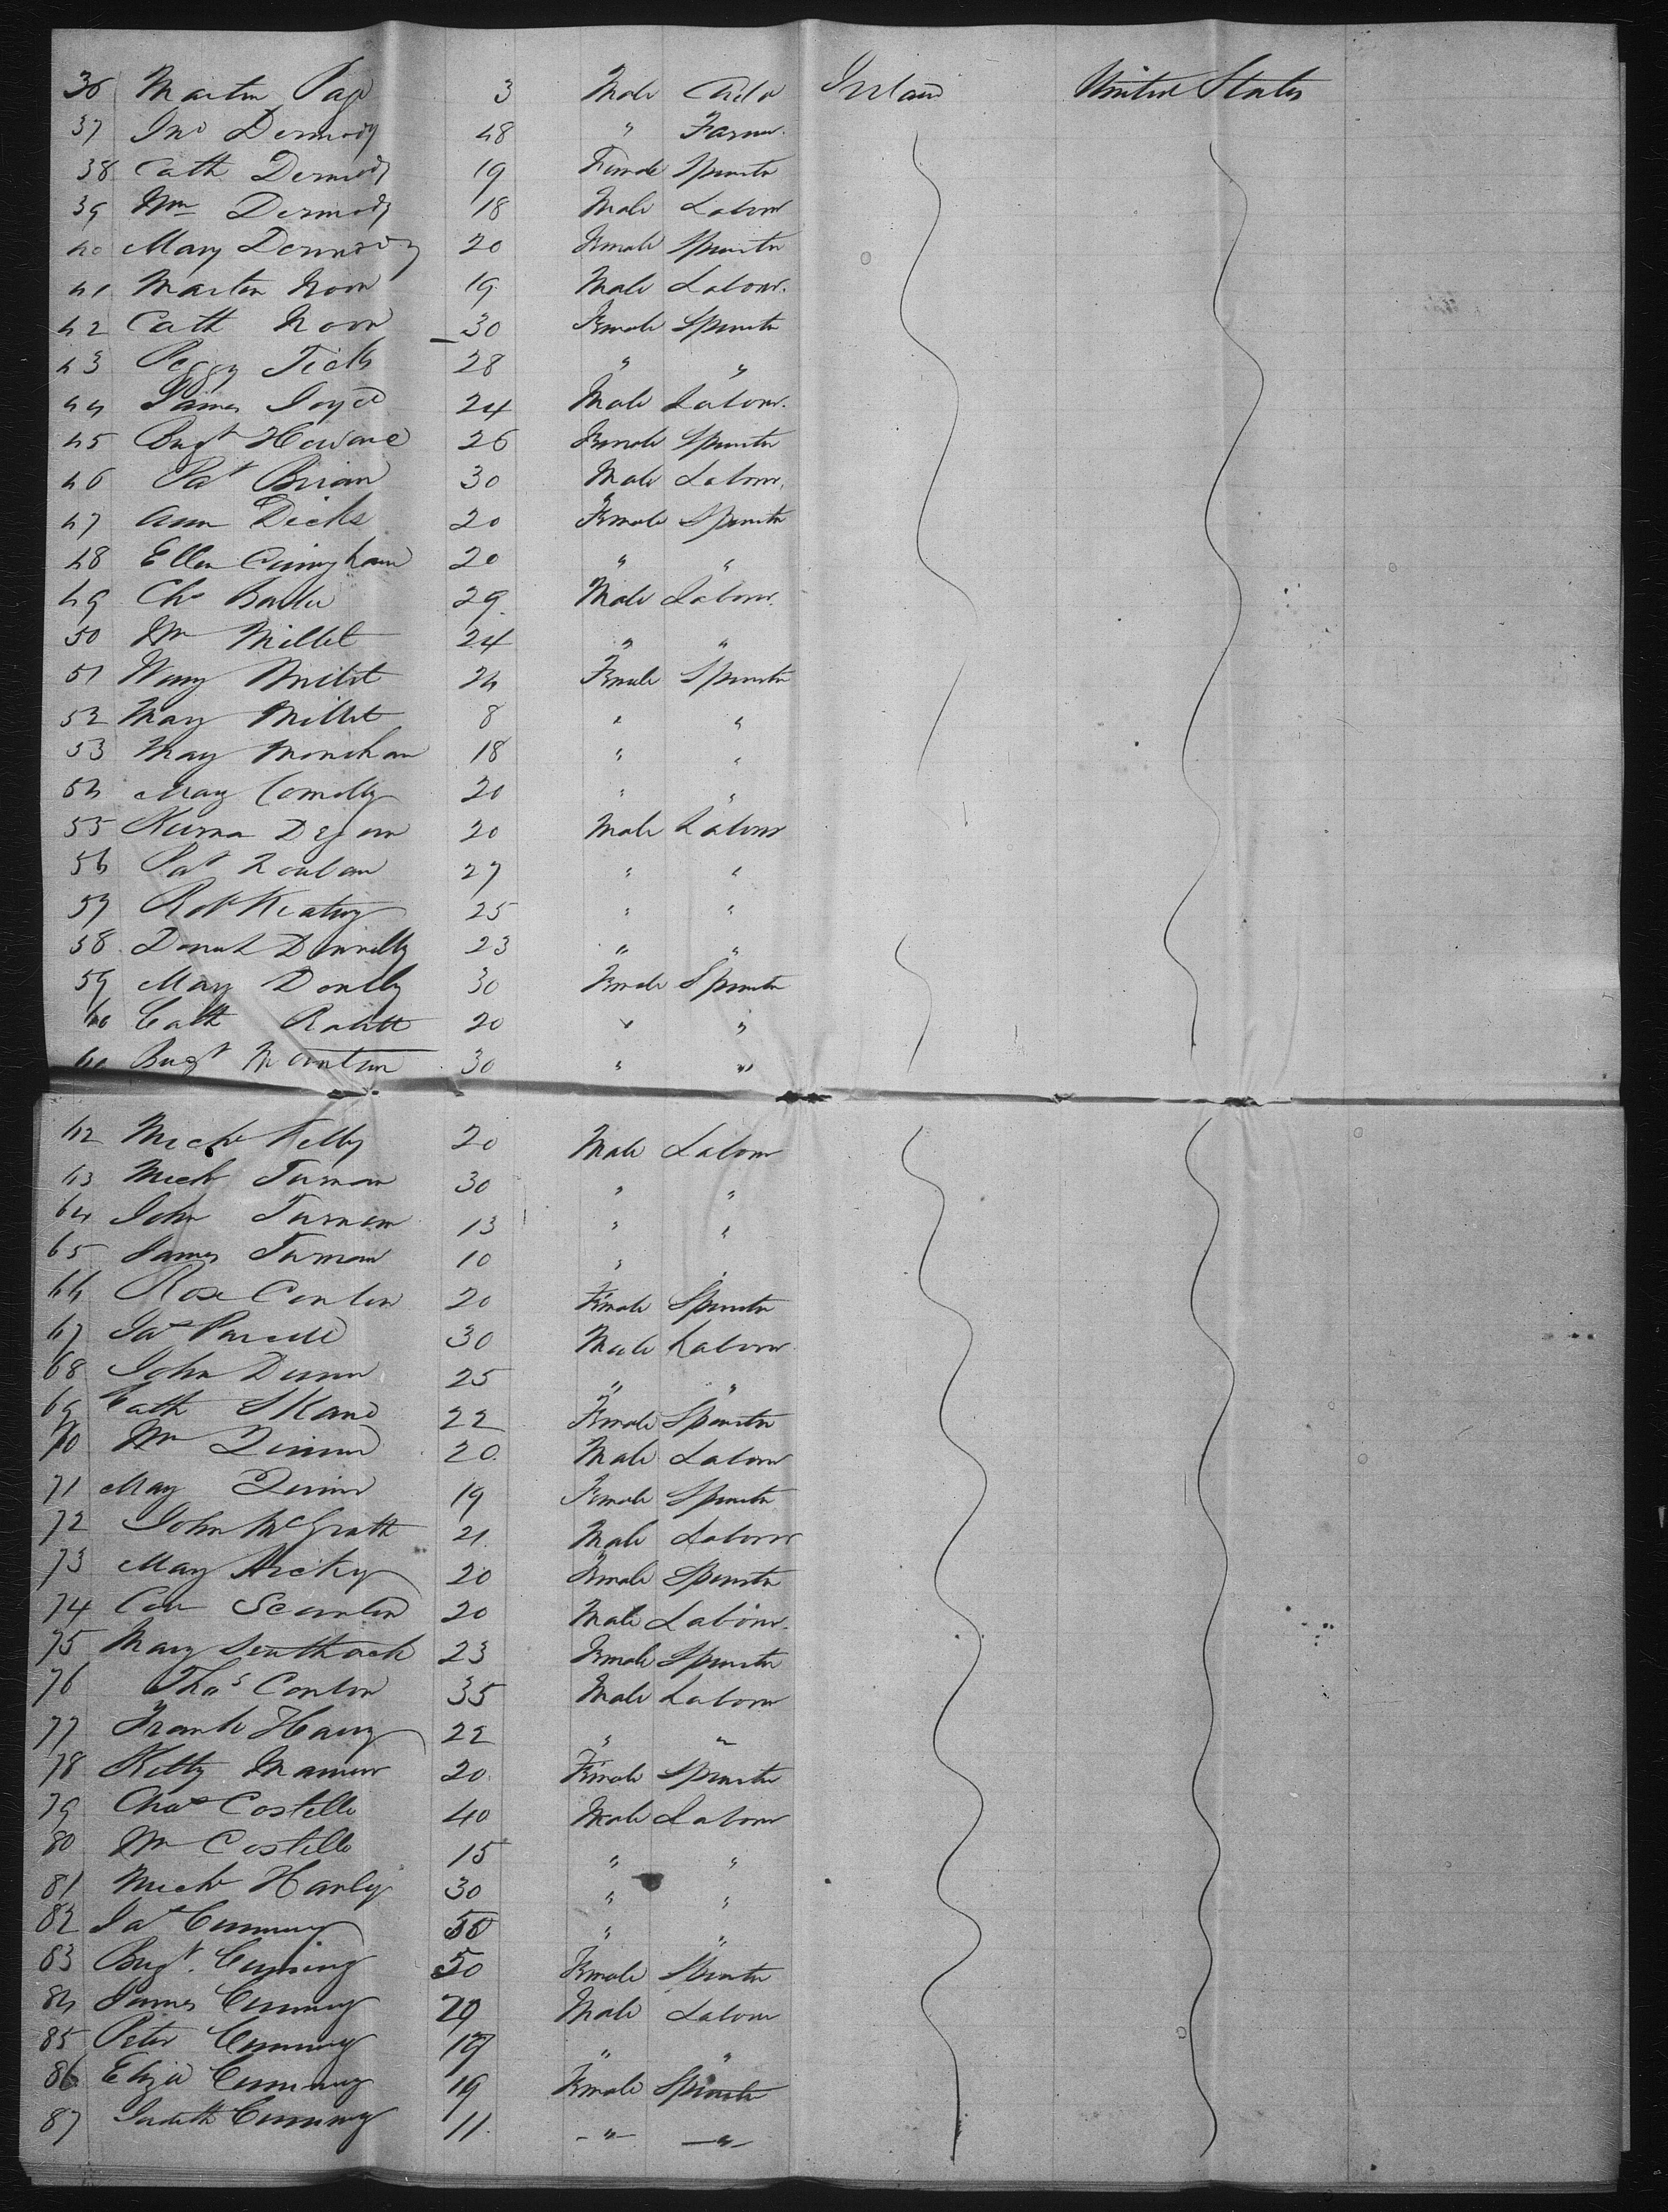 36 Martin Page 3 Male Child Ireland United States
37 Jno Dermody 48 " Farmer
38 Cath Dermody 19 Female Spinster
39 Wm Dermody 18 Male Labour
40 Mary Dermody 20 Female Spinster
41 Martin Noon 19 Male Labour
42 Cath Noon 30 Female Spinster
43 Peggy 28 " "
44 James Joyce 24 Male Labour
45 Bugt Howard 26 Female Spinster
46 Pat Brian 30 Male Labour
47 Ann Dicks 20 Female Spinster
48 Ellen Cuningham 20 " "
49 Chs 29 Male Labour
50 Wm Millet 24 " "
51 Millet 24 Female Spinster
52 Mary Millet 8 " "
53 Mary Monihan 18 " "
54 Mary Connolly 20 " "
55 20 Male Labour
56 Pat 27 " "
57 Robt Keating 25 " "
58 23 " "
59 Mary Donlly 30 Female Spinster
60 Cath Rabitt 20 " "
Bugt 30 " "
62 Michl Kelly 20 Male Labour
63 Michl Turnan 30 " "
64 John Turnan 13 " "
65 James Turnan 10 " "
66 Rose Conlon 20 Female Spinster
67 Jas Purcell 30 Male Labour
68 John Dunn 25 " "
69 Cath 22 Female Spinster
70 Wm Quinn 20 Male Labour
71 Mary Quinn 19 Female Spinster
72 John McGrath 21 Male Labour
73 Mary Hicky 20 Female Spinster
74 Scanlon 20 Male Labour
75 Mary 23 Female Spinster
76 Thos Conlon 35 Male Labour
77 Frank 22 " "
78 Kitty 20 Female Spinster
79 Chas Costello 40 Male Labour
80 Wm Costello 15 " "
81 Michl Hanly 30 " "
82 Jas Cumming 50 " "
83 Bugt Cumming 50 Female Spinster
84 James Cumming 20 Male Labour
85 Peter Cumming " "
86 Eliza Cumming 19 Female Spinster
87 Judith Cumming 11 " "